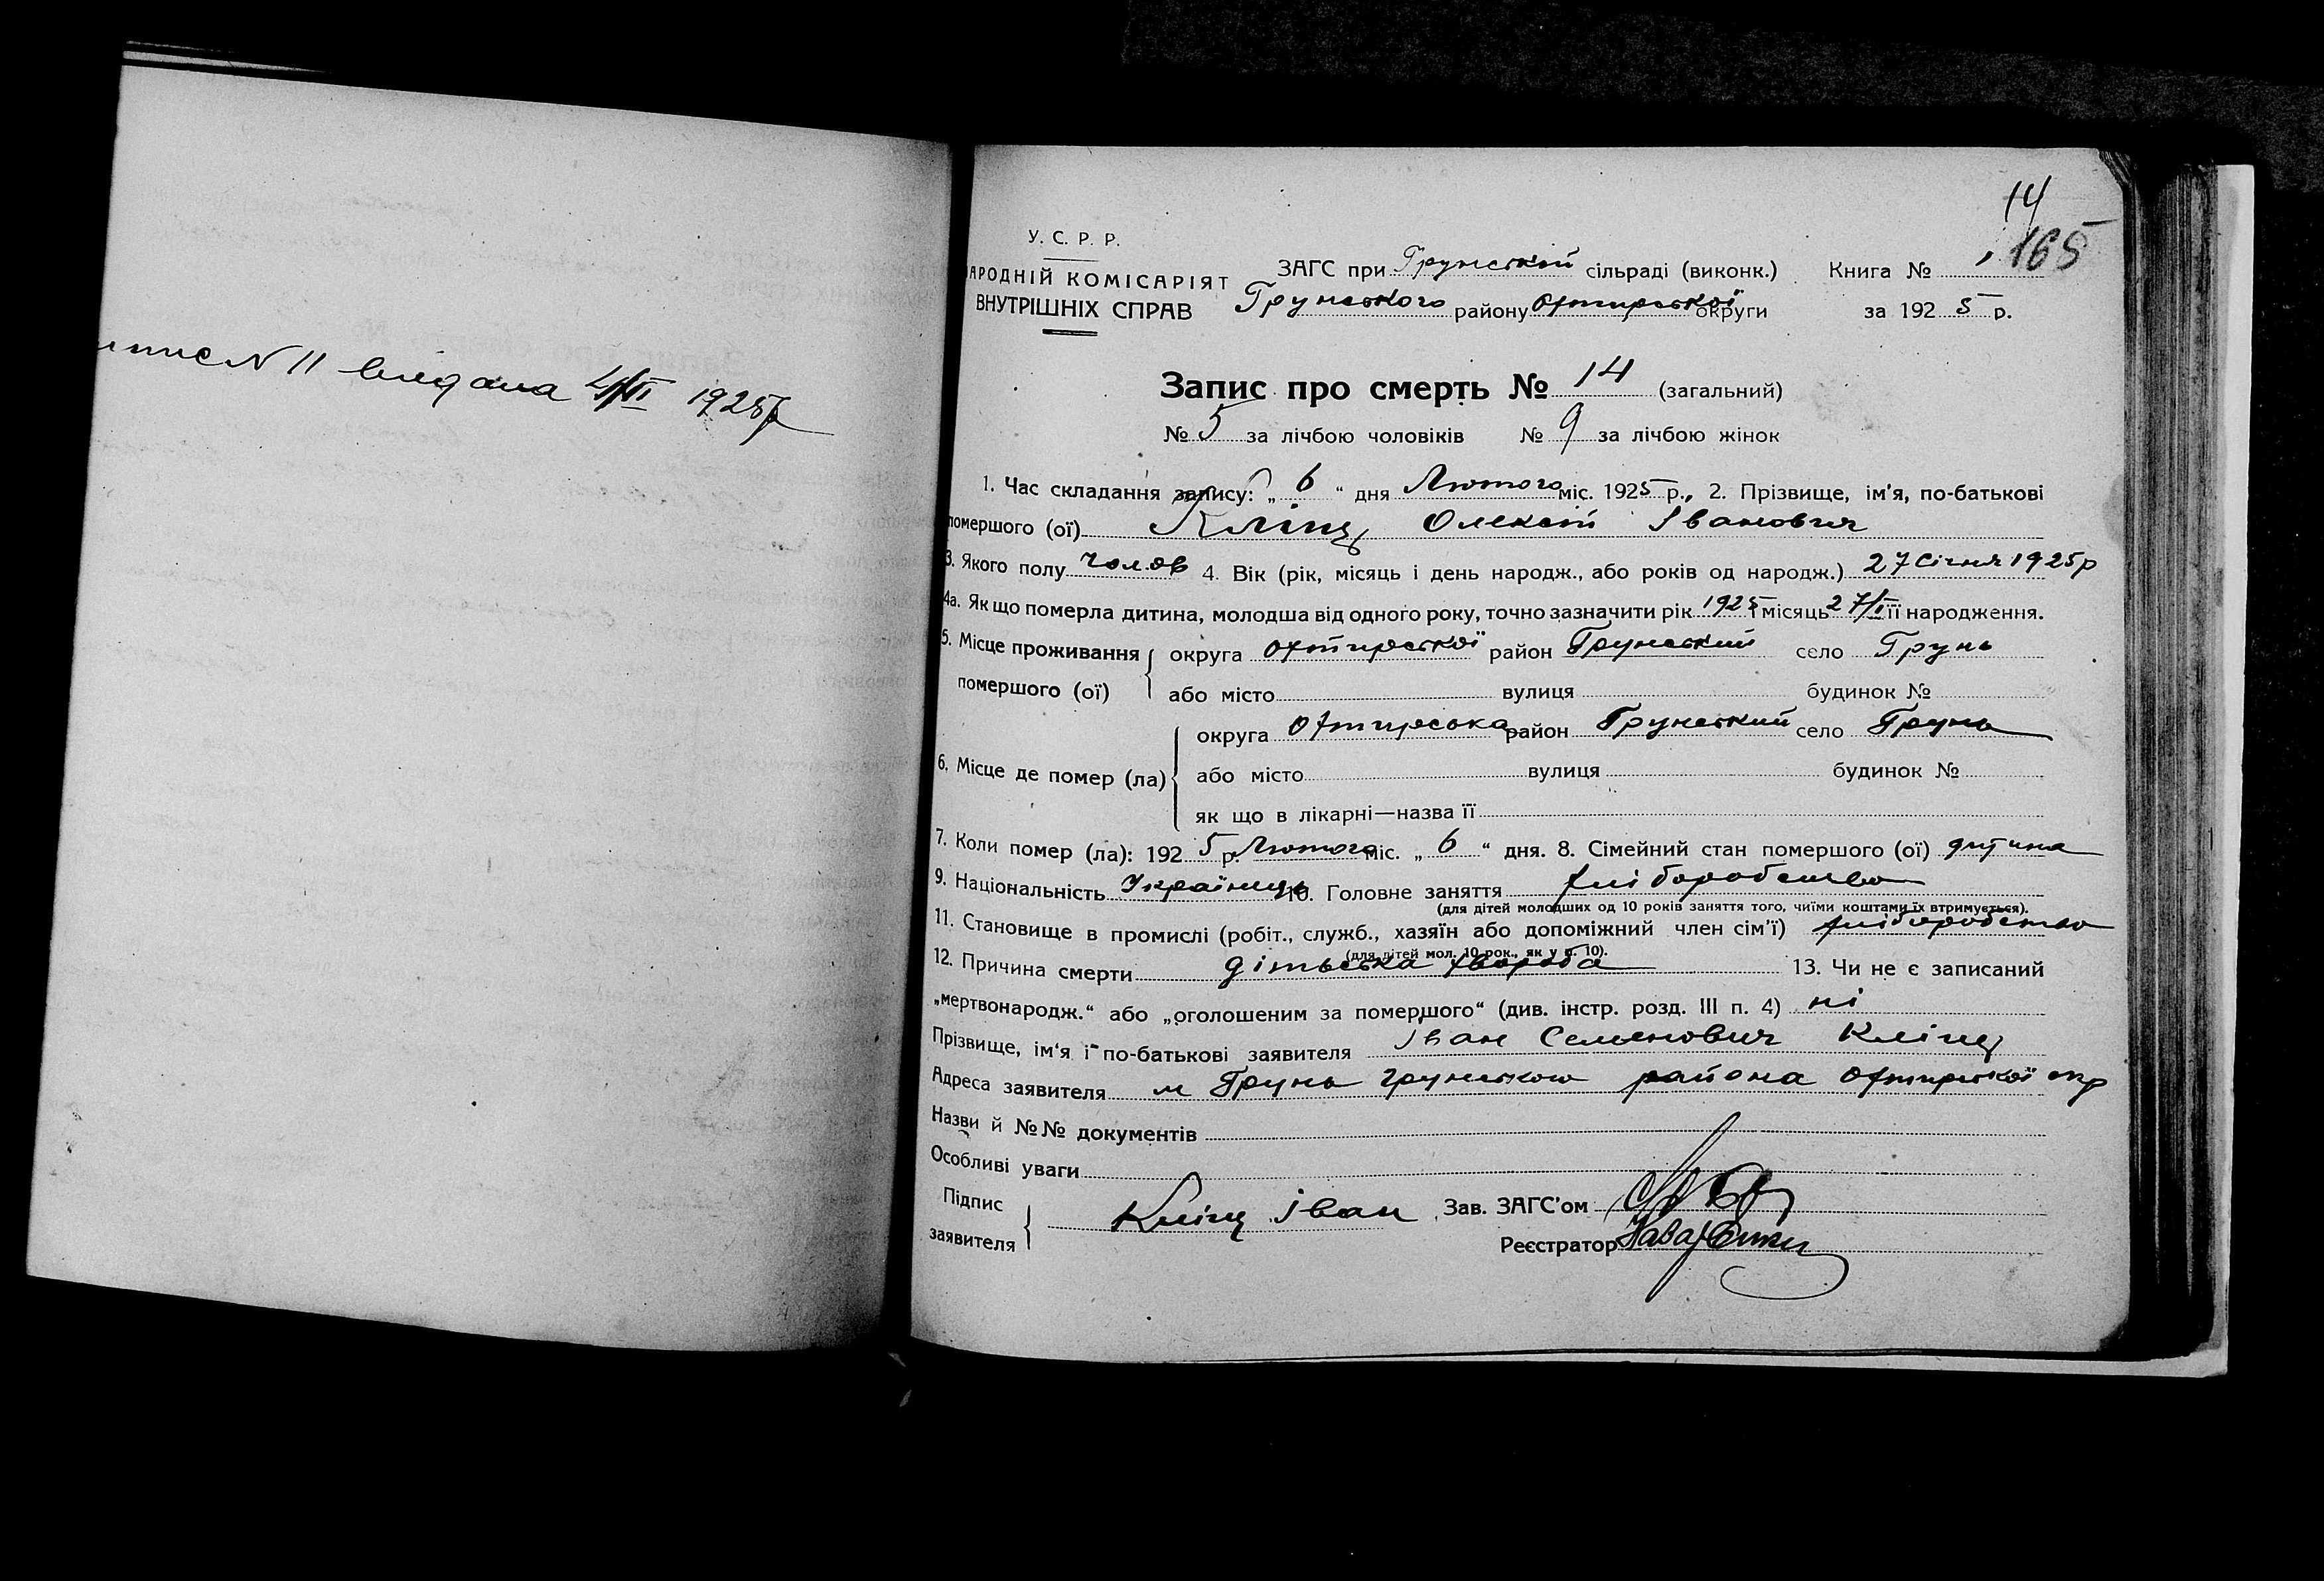 випис N 11 видана 4/II 1925 р
14
165
У. С. Р. Р.
АРОДНІЙ КОМІСАРІЯТ
ВНУТРІШНІХ СПРАВ
ЗАГС при Грунській сільраді (виконк.) Книга №
Грунського району Охтирської округи за 1925 р.
Запис про смерть № 14 (загальний)
№ 5 за лічбою чоловіків № 9 за лічбою жінок
1. Час складання запису: „6“ дня Лютого міс. 1925 р., 2. Прізвище, ім'я, по-батькові
помершого (ої) Кліщ Олексій Іванович
3. Якого полу чолов 4. Вік (рік, місяць і день народж., або років од народж.) 27 Січня 1925 р
4а. Як що померла дитина, молодша від одного року, точно зазначити рік 1925 місяць 27/I її народження.
5. Місце проживання помершого (ої) { округа Охтирської район Грунський село Грунь
або місто вулиця будинок №
6. Місце де помер (ла) { округа Охтирська район Грунський село Грунь
або місто вулиця будинок №
як що в лікарні—назва її
7. Коли помер (ла): 1925 р. Лютого міс. „6“ дня. 8. Сімейний стан помершого (ої) дитина
9. Національність Українець 10. Головне заняття хліборобство
(для дітей молодших од 10 років заняття того, чиїми коштами їх втримується).
11. Становище в промислі (робіт., служб., хазяїн або допоміжний член сім'ї) хліборобство
(для дітей мол. 10 рок., як у п. 10).
12. Причина смерти дітьська хвороба 13. Чи не є записаний
„мертвонародж.“ або „оголошеним за помершого“ (див. інстр. розд. III п. 4) ні
Прізвище, ім'я і по-батькові заявителя Іван Семенович Кліщ
Адреса заявителя м Грунь Грунського района Охтирської окр
Назви й №№ документів
Особливі уваги
Підпис заявителя } Кліщ Іван Зав. ЗАГС'ом
Реєстратор